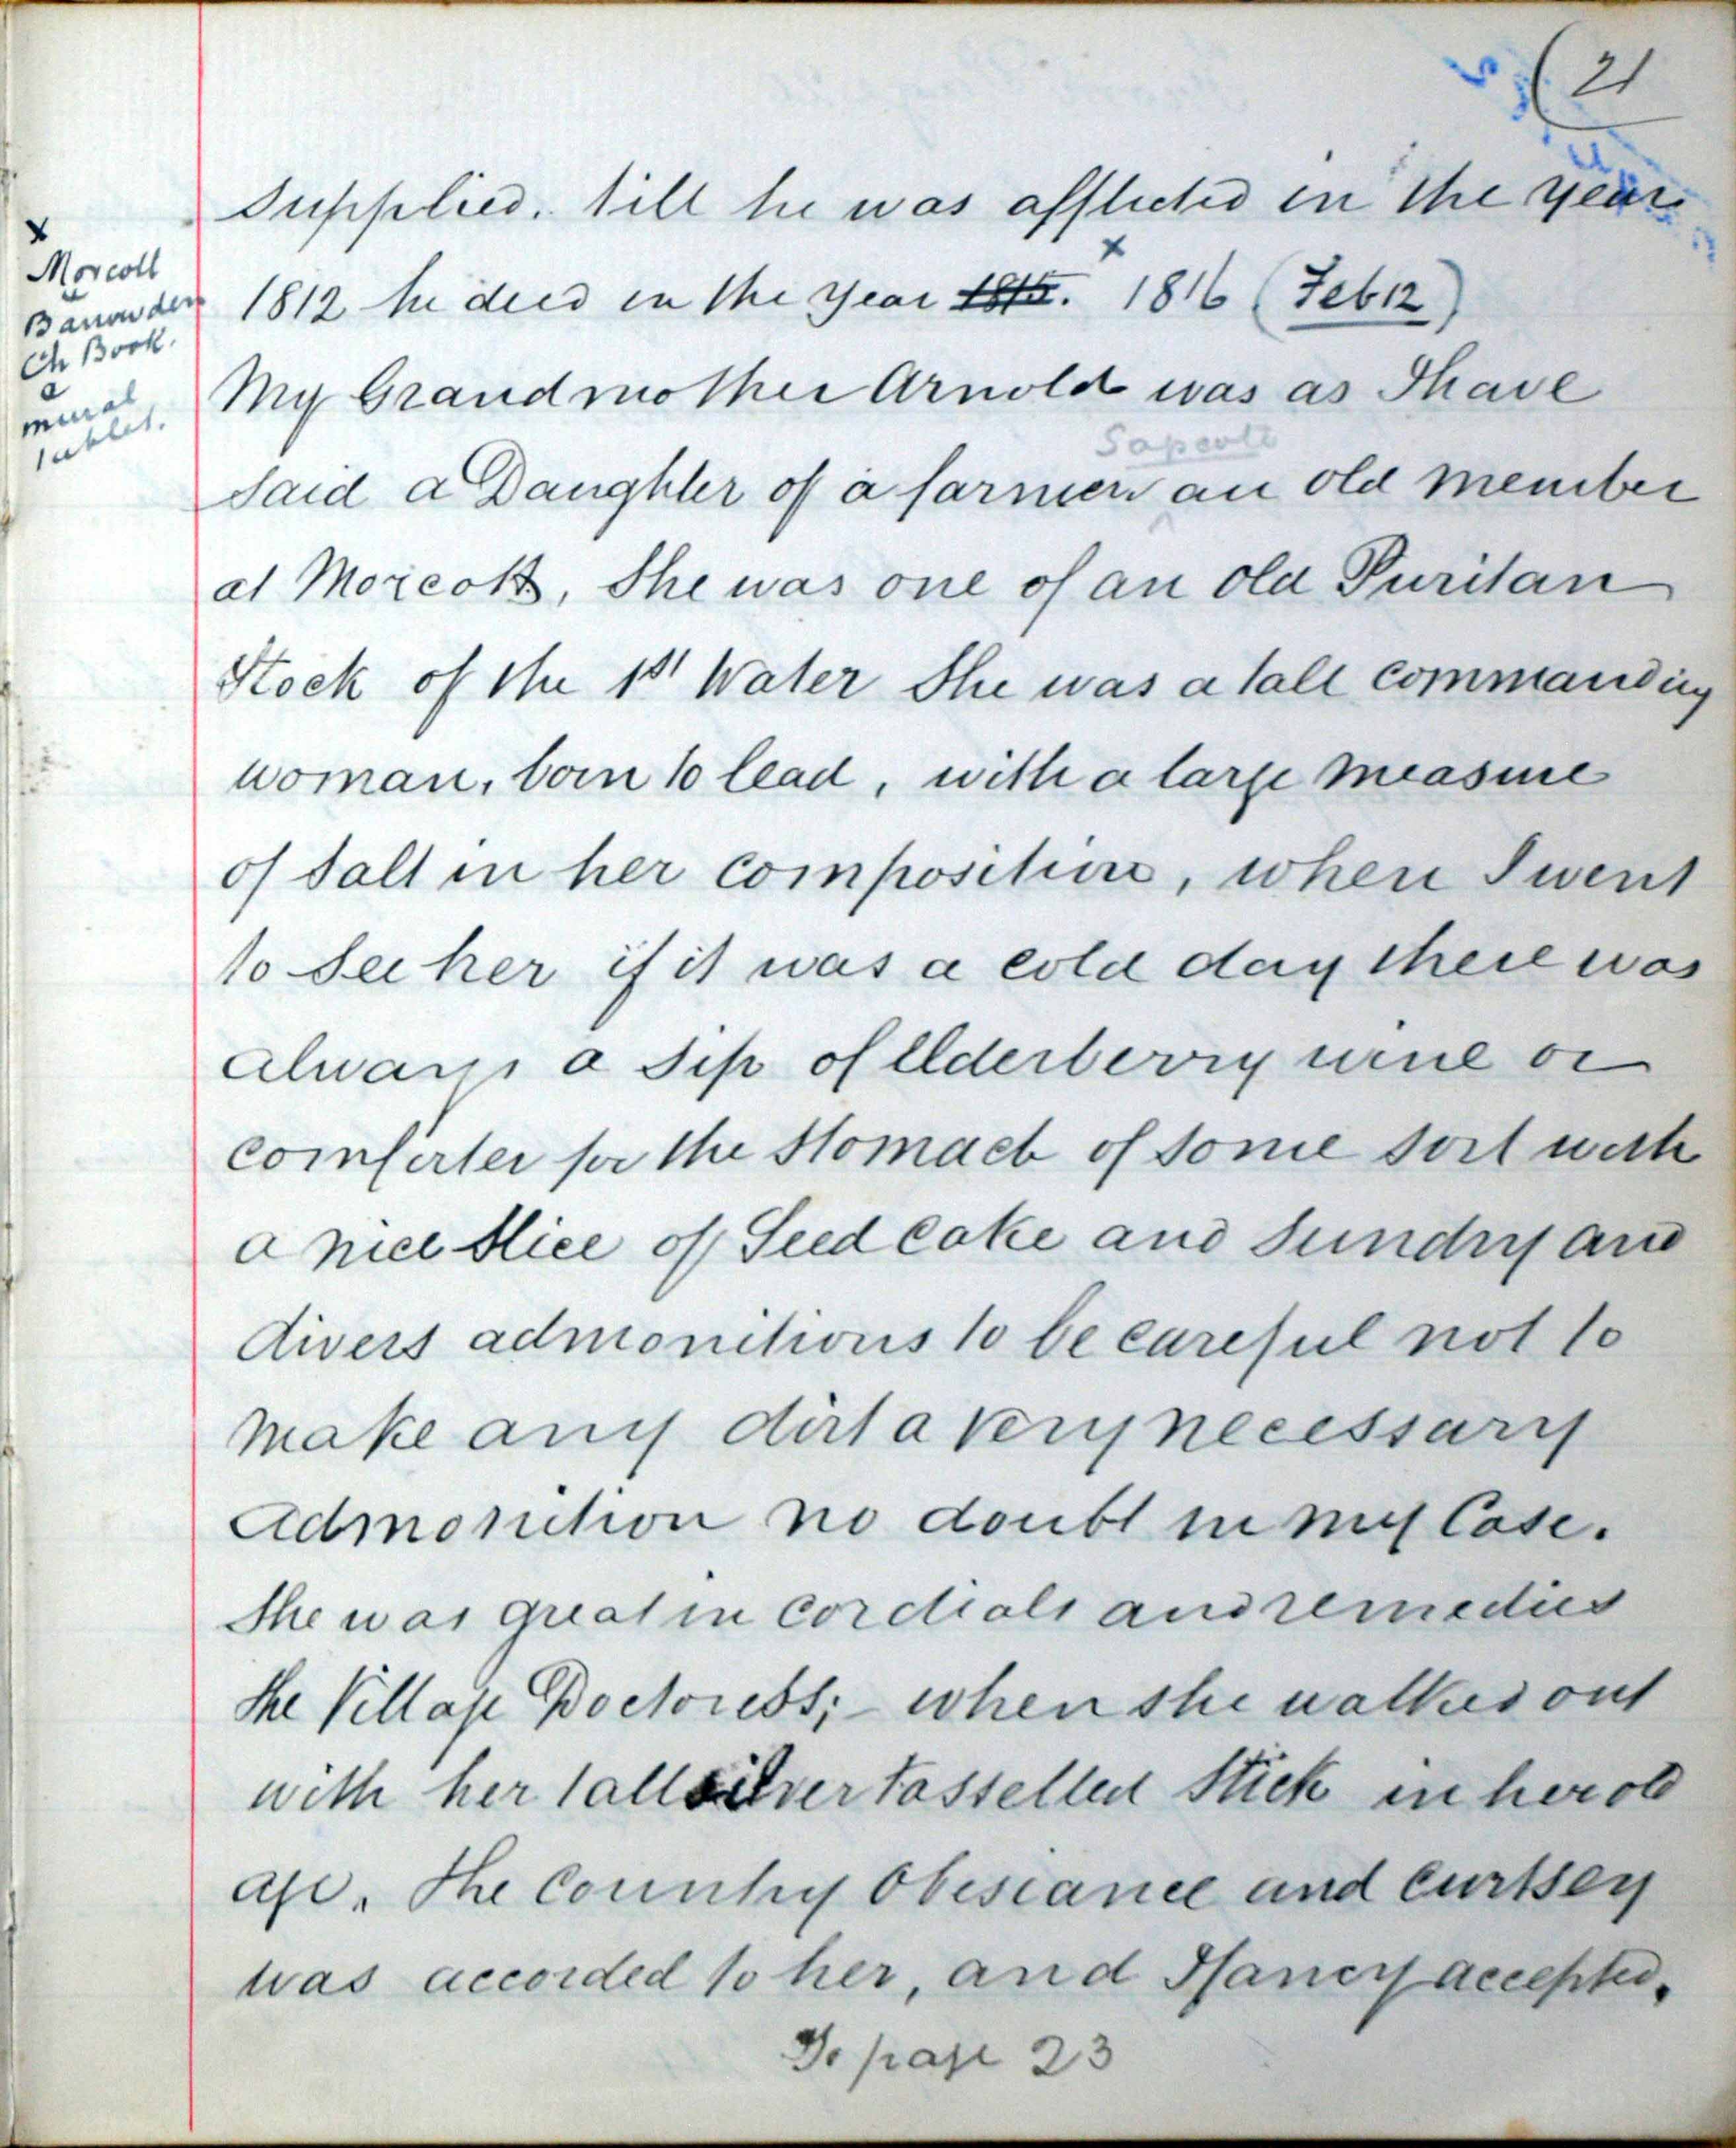 (21
supplied. till he was afflicted in the year
1812 he died in the year 1815. x 1816 (Feb 12)
x
Morcott
Barrowden
Ch Book.
a
mural
tablet.
My Grandmother Arnold was as I have
Sapcote
said a Daughter of a farmer an old member
at Morcott, She was one of an old Puritan
Stock of the 1st Water She was a tall commanding
woman, born to lead, with a large measure
of salt in her composition, when I went
to see her if it was a cold day there was
always a sip of Elderberry wine or
comforter for the stomach of some sort with
a nice slice of Seed cake and sundry and
divers admonitions to be careful not to
make any dirt a very necessary
admonition no doubt in my Case.
She was great in cordials and remedies
the Village Doctoress;- when she walked out
with her tall silver tasselled stick in her old
age. The Country Obesiance and curtsey
was accorded to her, and I fancy accepted.
To page 23